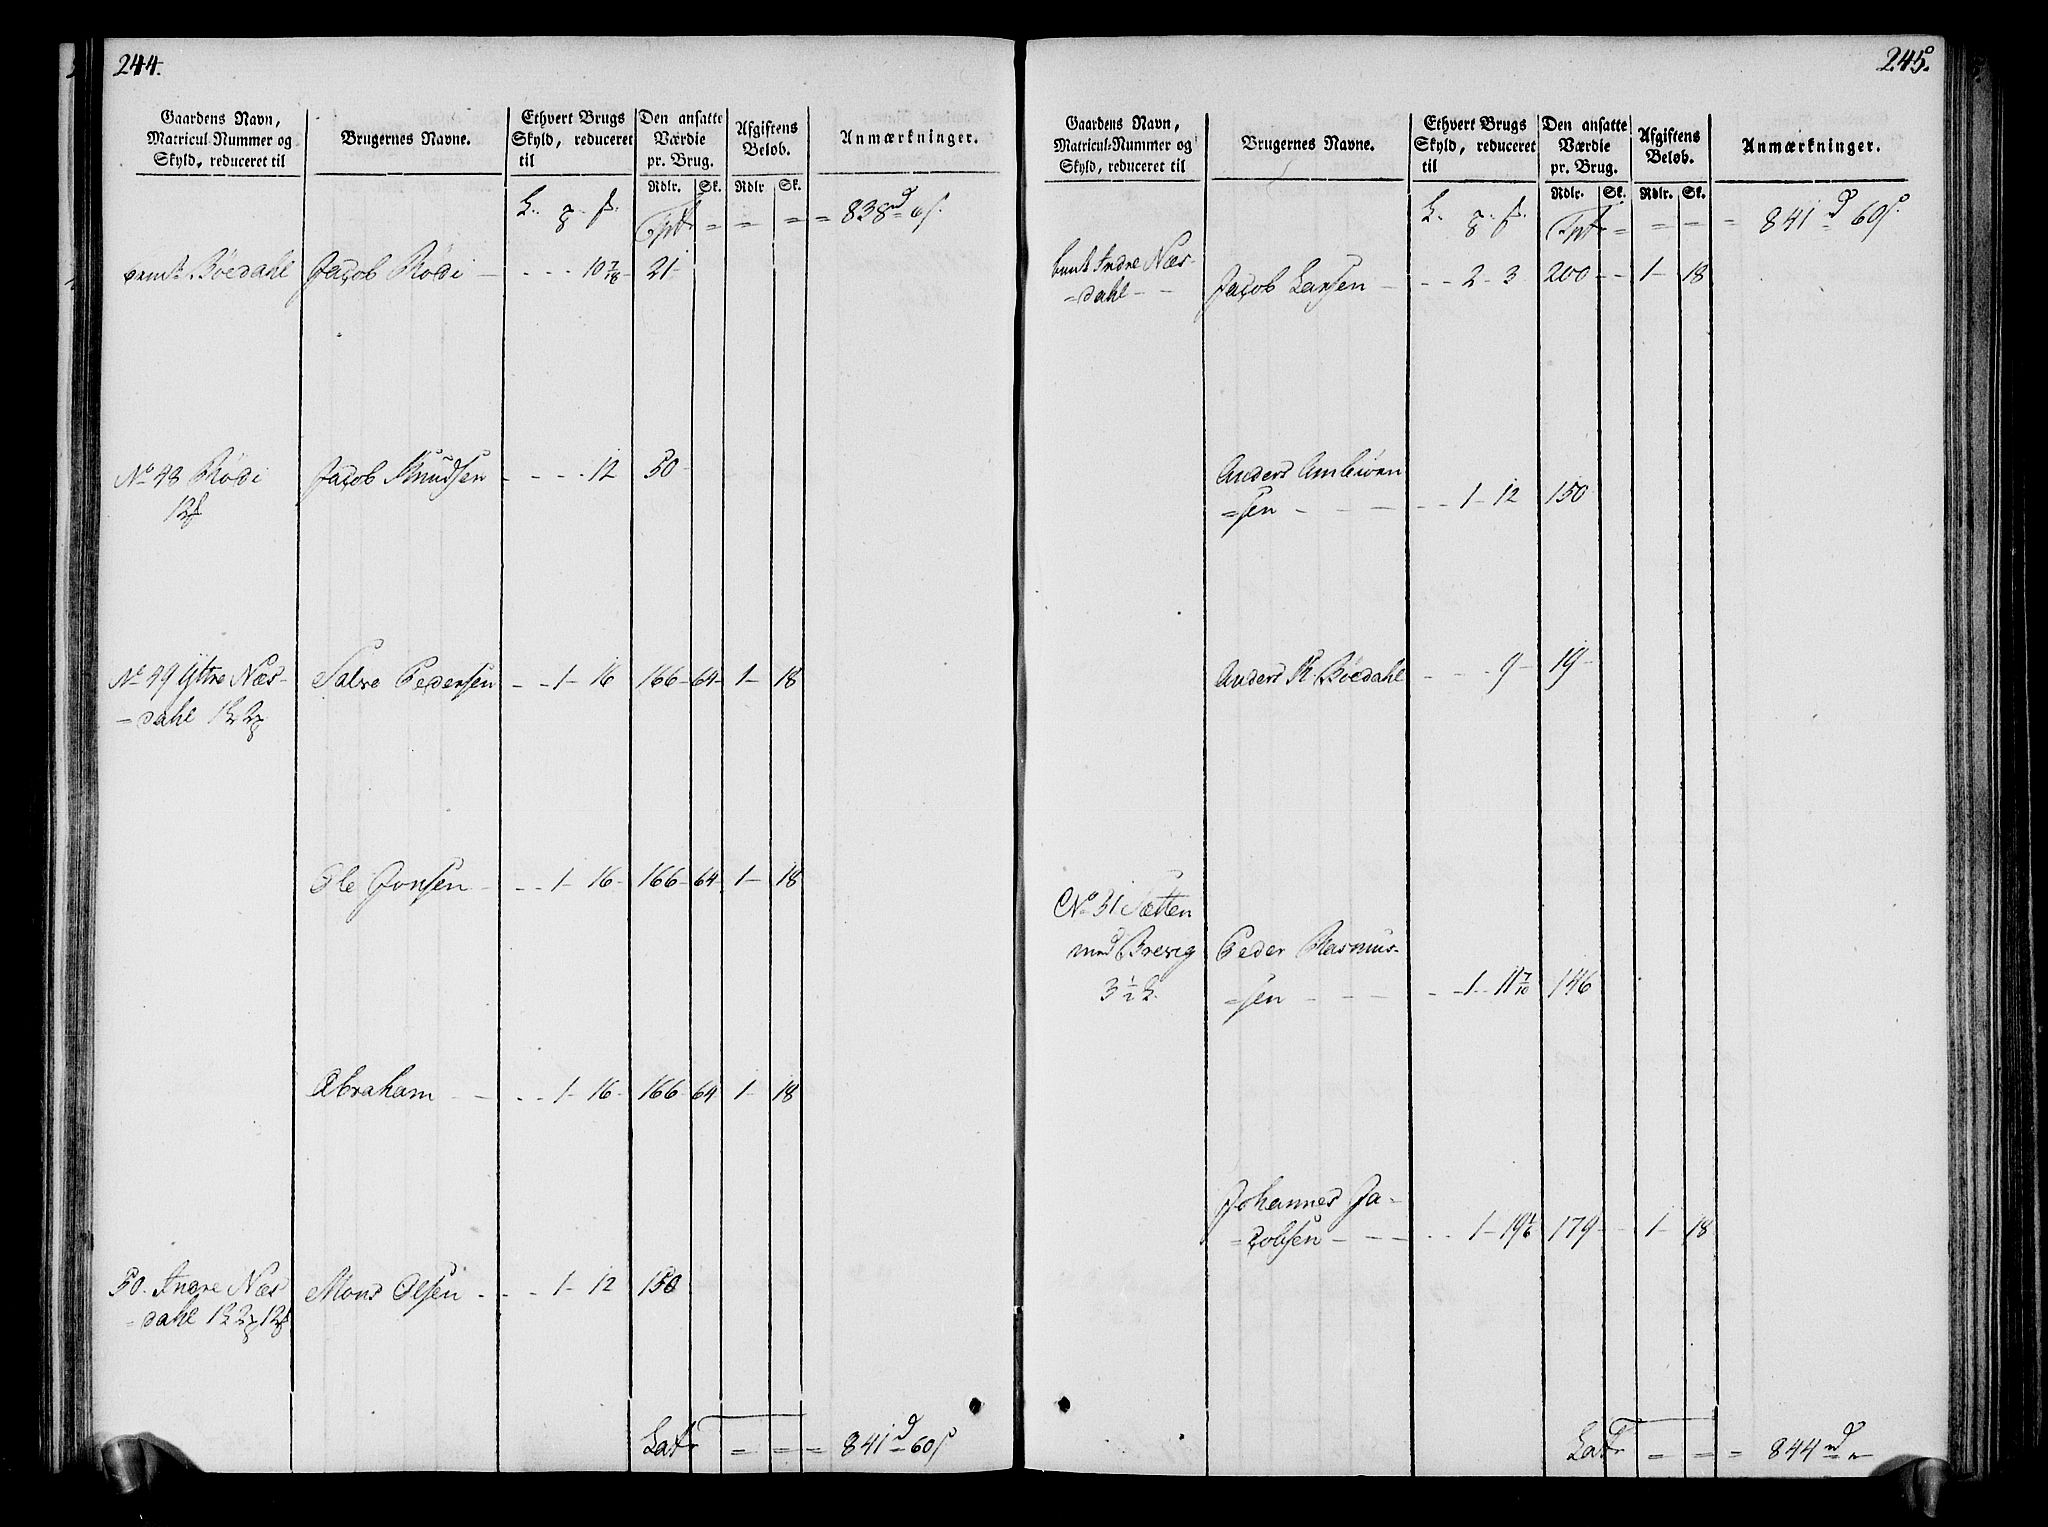 244.
Gaardens Navn, Matricul-Nummer og Skyld, reduceret til
Brugernes Navne.
Ethvert Brugs Skyld, reduceret til
Den ansatte Værdie pr. Brug.
Afgiftens Beløb.
Anmærkninger.
Rdlr. Sk. Rdlr Sk.
= = = = 838
Bøedahl Jacob Rødi - - - - 10 7/8 - 21 -
No 48 Rødi Jacob Knudsen - - - - 12 50 -
12
No 49 Yttre Næs- Salve Pedersen - - 1 - 16 166 - 64 - 1 - 18
= dahl 1 2
Ole Jonsen - - - 1 - 16 - 166 - 64 - 1 - 18
Abraham - - - - 1 - 16 - 166 - 64 1 - 18
50. Indre Næs Mons Olsen - - - 1 - 12 150
= dahl 1 2 12
Lat = = = = 841 = 60
245.
Gaardens Navn, Matricul-Nummer og Skyld, reduceret til
Brugernes Navne.
Ethvert Brugs Skyld, reduceret til
Den ansatte Værdie pr. Brug.
Afgiftens Beløb.
Anmærkninger.
Rdlr. Sk. Rdlr. Sk.
= = = = = 841 60
Indre Næs-
= dahl - - Jacob Larsen - - - 2 - 3 200 - - 1 - 18
Anders
= sen - - - - - 1 - 12 150
Anders K. Bøedahl - - - 9 - 19 -
No 51 Sætten
med Brevig Peder Rasmus-
3 1/2 = sen - - - - - 1 - 11 7/10 146
Johannes Ja-
= cobsen - - - - - 1 - 19 1/6 179 - - 1 - 18
Lat = = = = 844